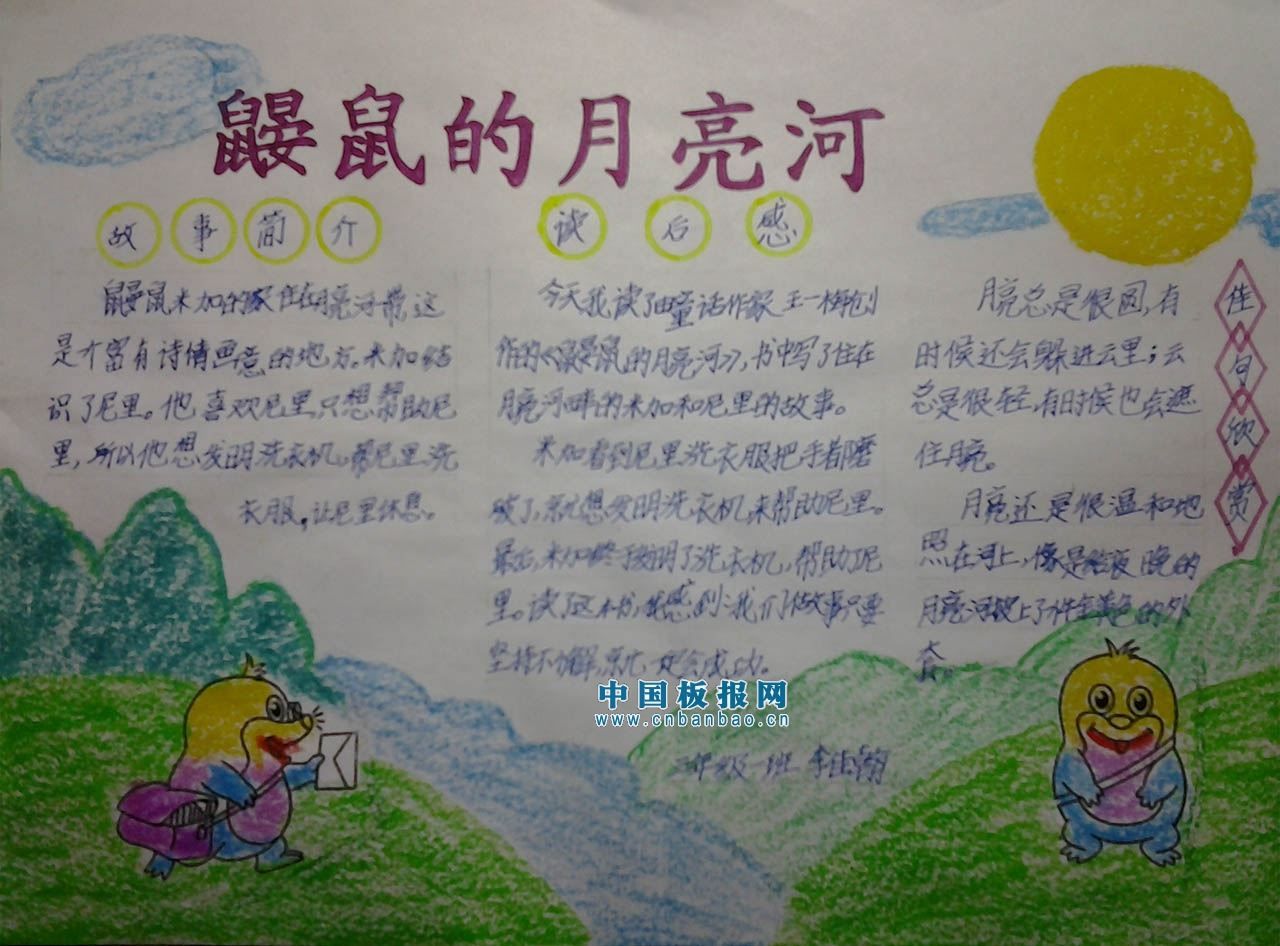 鼹鼠的月亮河
故事简介
鼹鼠米加的家住在月亮河带,这
是才富有诗情画意的地方。米加结
识了尼里。他喜欢尼里,只想帮助尼
里,所以他想发明洗衣机,帮尼里洗
衣服,让尼里休息。
读后感
今天我读了童话作家王一梅创
作的《鼹鼠的月亮河》,书中写了住在
月亮河畔的米加和尼里的故事。
米加看到尼里洗衣服把手都磨
破了,就想发明洗衣机来帮助尼里。
最后,米加终于发明了洗衣机,帮助尼
里。读了这本书,我感到:我们做故事只要
坚持不懈,就一定会成功。
佳句欣赏
月亮总是很圆,有
时候还会躲进云里;云
总是很轻,有时候也会遮
住月亮。
月亮还是很温和地
照在河上,像是给夜晚的
月亮河披上了件金黄色的外
套。
中国板报网
www.cnbanbao.cn
年级一班 李